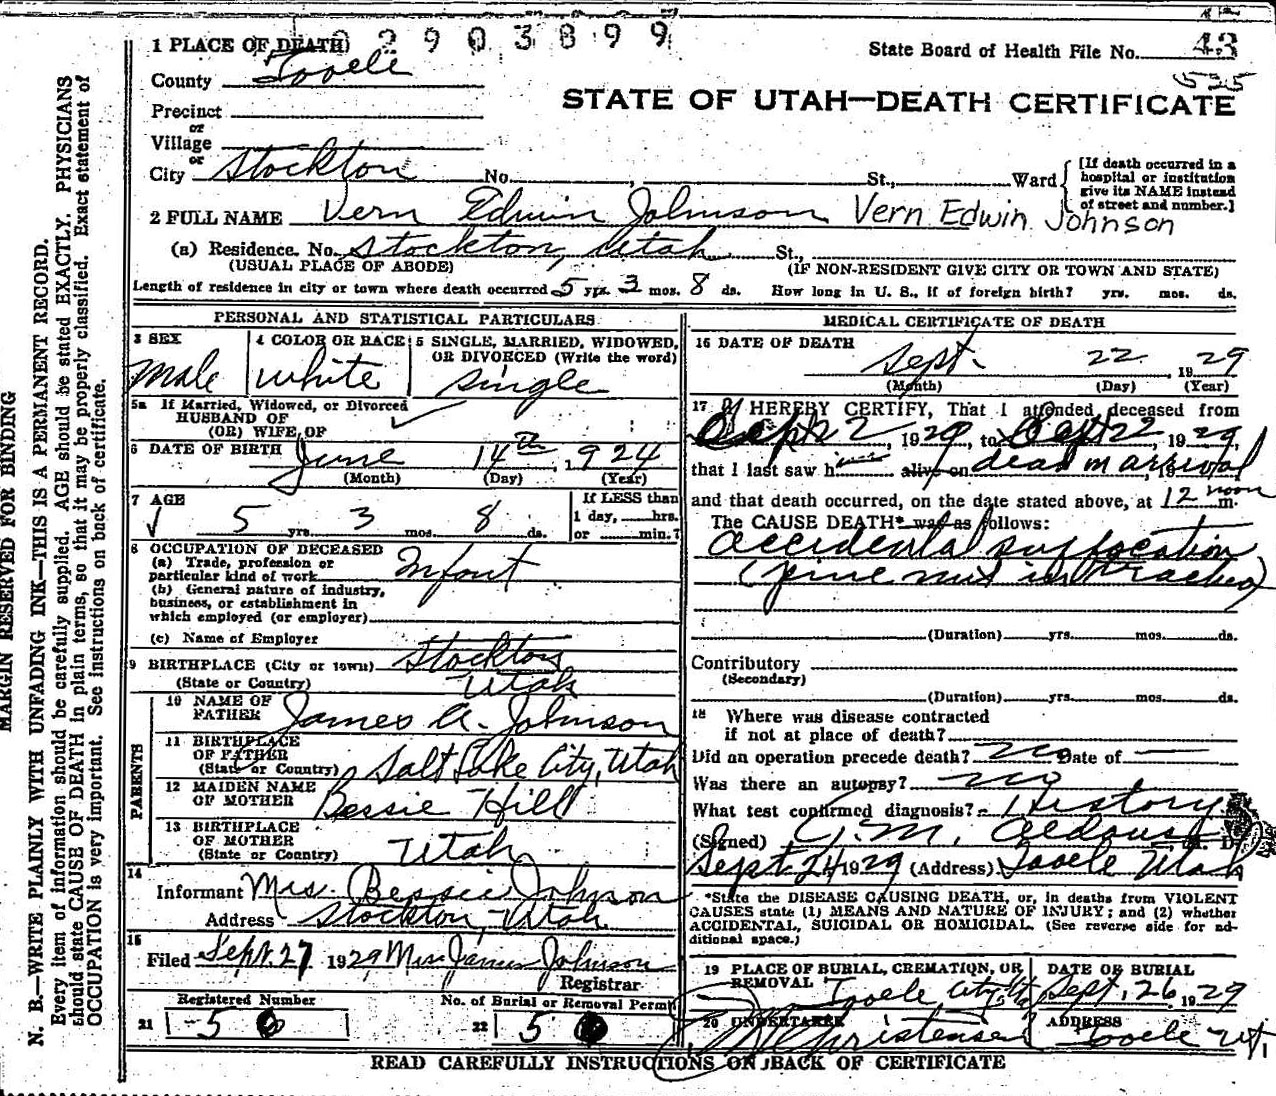 2903899
1 PLACE OF DEATH
State Board of Health File No. 43
County Tooele
525
STATE OF UTAH—DEATH CERTIFICATE
Precinct
or
Village
or
City Stockton No. , St., Ward
[If death occurred in a
hospital or institution
give its NAME instead
of street and number.]
2 FULL NAME Vern Edwin Johnson Vern Edwin Johnson
(a) Residence. No. Stockton, Utah St.,
(USUAL PLACE OF ABODE) (IF NON-RESIDENT GIVE CITY OR TOWN AND STATE)
Length of residence in city or town where death occurred 5 yrs. 3 mos. 8 ds. How long in U. S., if of foreign birth? yrs. mos. ds.
PERSONAL AND STATISTICAL PARTICULARS
3 SEX 4 COLOR OR RACE 5 SINGLE, MARRIED, WIDOWED,
OR DIVORCED (Write the word)
Male white single
5a If Married, Widowed, or Divorced
HUSBAND OF
(OR) WIFE OF
6 DATE OF BIRTH June 14th, 1924
(Month) (Day) (Year)
7 AGE If LESS than
1 day, hrs.
or min.?
5 yrs. 3 mos. 8 ds.
8 OCCUPATION OF DECEASED
(a) Trade, profession or
particular kind of work Infant
(b) General nature of industry,
business, or establishment in
which employed (or employer)
(c) Name of Employer
9 BIRTHPLACE (City or town) Stockton
(State or Country) Utah
PARENTS
10 NAME OF
FATHER James A. Johnson
11 BIRTHPLACE
OF FATHER
(State or Country) Salt Lake City, Utah
12 MAIDEN NAME
OF MOTHER Bessie Hill
13 BIRTHPLACE
OF MOTHER
(State or Country) Utah
14
Informant Mrs. Bessie Johnson
Address Stockton, Utah
15
Filed Sept. 27 1929 Mrs James Johnson
Registrar
Registered Number No. of Burial or Removal Permit
21 5 22 5
MEDICAL CERTIFICATE OF DEATH
16 DATE OF DEATH
Sept. 22 1929
(Month) (Day) (Year)
17 I HEREBY CERTIFY, That I attended deceased from
Sept 22, 1929, to Sept 22, 1929,
that I last saw him alive on dead on arrival, 19
and that death occurred, on the date stated above, at 12 noon m.
The CAUSE DEATH* was as follows:
accidental suffocation
(pine nut in trachea)
(Duration) yrs. mos. ds.
Contributory
(Secondary)
(Duration) yrs. mos. ds.
18 Where was disease contracted
if not at place of death?
Did an operation precede death? no Date of —
Was there an autopsy? no
What test confirmed diagnosis? History
(Signed) J. M. Aldous, M. D.
Sept. 24 1929 (Address) Tooele Utah
*State the DISEASE CAUSING DEATH, or, in deaths from VIOLENT
CAUSES state (1) MEANS AND NATURE OF INJURY; and (2) whether
ACCIDENTAL, SUICIDAL OR HOMICIDAL. (See reverse side for ad-
ditional space.)
19 PLACE OF BURIAL, CREMATION, OR
REMOVAL DATE OF BURIAL
Tooele City, Ut Sept. 26 1929
20 UNDERTAKER ADDRESS
Christensen Tooele Ut.
READ CAREFULLY INSTRUCTIONS ON BACK OF CERTIFICATE
MARGIN RESERVED FOR BINDING
N. B.—WRITE PLAINLY WITH UNFADING INK—THIS IS A PERMANENT RECORD.
Every item of information should be carefully supplied. AGE should be stated EXACTLY. PHYSICIANS
should state CAUSE OF DEATH in plain terms, so that it may be properly classified. Exact statement of
OCCUPATION is very important. See instructions on back of certificate.